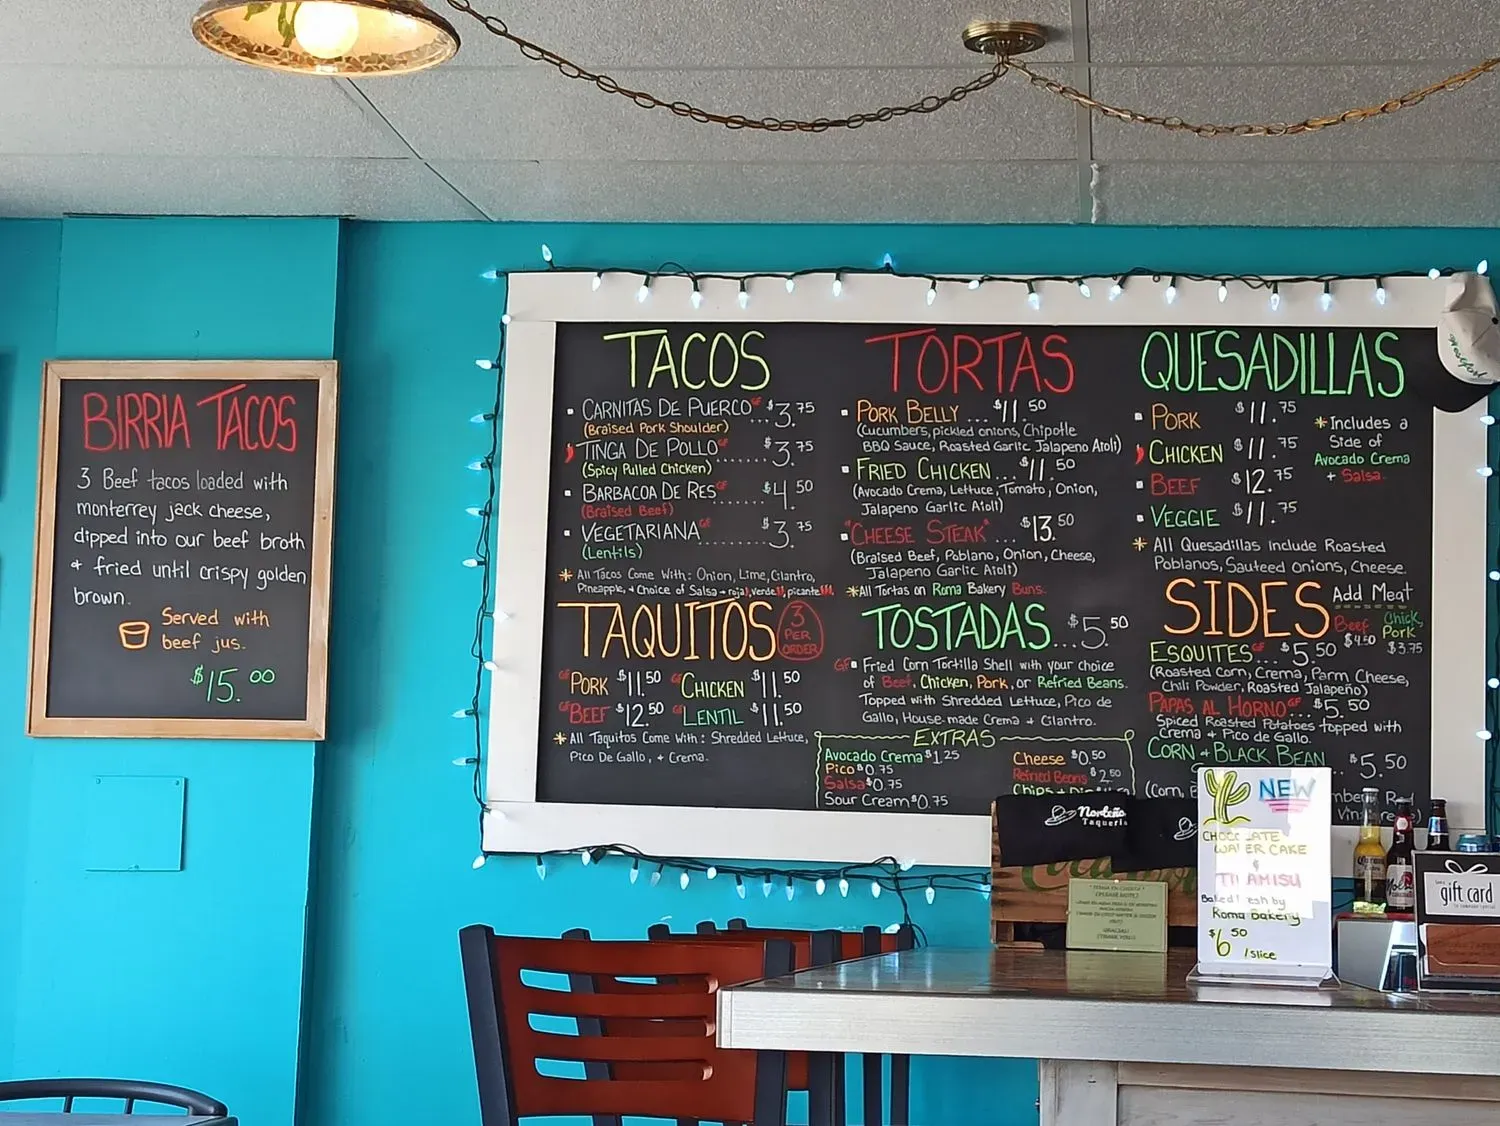 BIRRIA TACOS
3 Beef tacos loaded with
monterrey jack cheese,
dipped into our beef broth
+ fried until crispy golden
brown.
Served with
beef jus.
$15.00
TACOS
CARNITAS DE PUERCO GF $3.75
(Braised Pork Shoulder)
TINGA DE POLLO GF $3.75
(Spicy Pulled Chicken)
BARBACOA DE RES GF $4.50
(Braised Beef)
VEGETARIANA GF $3.75
(Lentils)
* All Tacos Come With: Onion, Lime, Cilantro,
Pineapple, + Choice of Salsa - roja, verde, picante
TAQUITOS
3
PER
ORDER
GF PORK $11.50 GF CHICKEN $11.50
GF BEEF $12.50 GF LENTIL $11.50
* All Taquitos Come With: Shredded Lettuce,
Pico De Gallo, + Crema.
TORTAS
PORK BELLY... $11.50
(Cucumbers, pickled onions, Chipotle
BBQ Sauce, Roasted Garlic Jalapeno Aioli)
FRIED CHICKEN... $11.50
(Avocado Crema, Lettuce, Tomato, Onion,
Jalapeno Garlic Aioli)
"CHEESE STEAK"... $13.50
(Braised Beef, Poblano, Onion, Cheese,
Jalapeno Garlic Aioli)
*All Tortas on Roma Bakery Buns.
TOSTADAS...$5.50
GF Fried Corn Tortilla Shell with your choice
of Beef, Chicken, Pork, or Refried Beans.
Topped with Shredded Lettuce, Pico de
Gallo, House-made Crema + Cilantro.
EXTRAS
Avocado Crema $1.25
Pico $0.75
Salsa $0.75
Sour Cream $0.75
Cheese $0.50
Refried Beans $2.50
Chips + Dip
QUESADILLAS
PORK $11.75
CHICKEN $11.75
BEEF $12.75
VEGGIE $11.75
* Includes a
Side of
Avocado Crema
+ Salsa.
* All Quesadillas Include Roasted
Poblanos, Sauteed Onions, Cheese.
SIDES
Add Meat
Beef $4.50
Chick, Pork $3.75
ESQUITES GF... $5.50
(Roasted Corn, Crema, Parm Cheese,
Chili Powder, Roasted Jalapeño)
PAPAS AL HORNO GF... $5.50
Spiced Roasted Potatoes topped with
Crema + Pico de Gallo.
CORN + BLACK BEAN
$5.50
(Corn,
Norteño
Taqueria
NEW
CHOCOLATE
WAFER CAKE
&
TIRAMISU
Baked Fresh by
Roma Bakery
$6.50 /slice
gift card